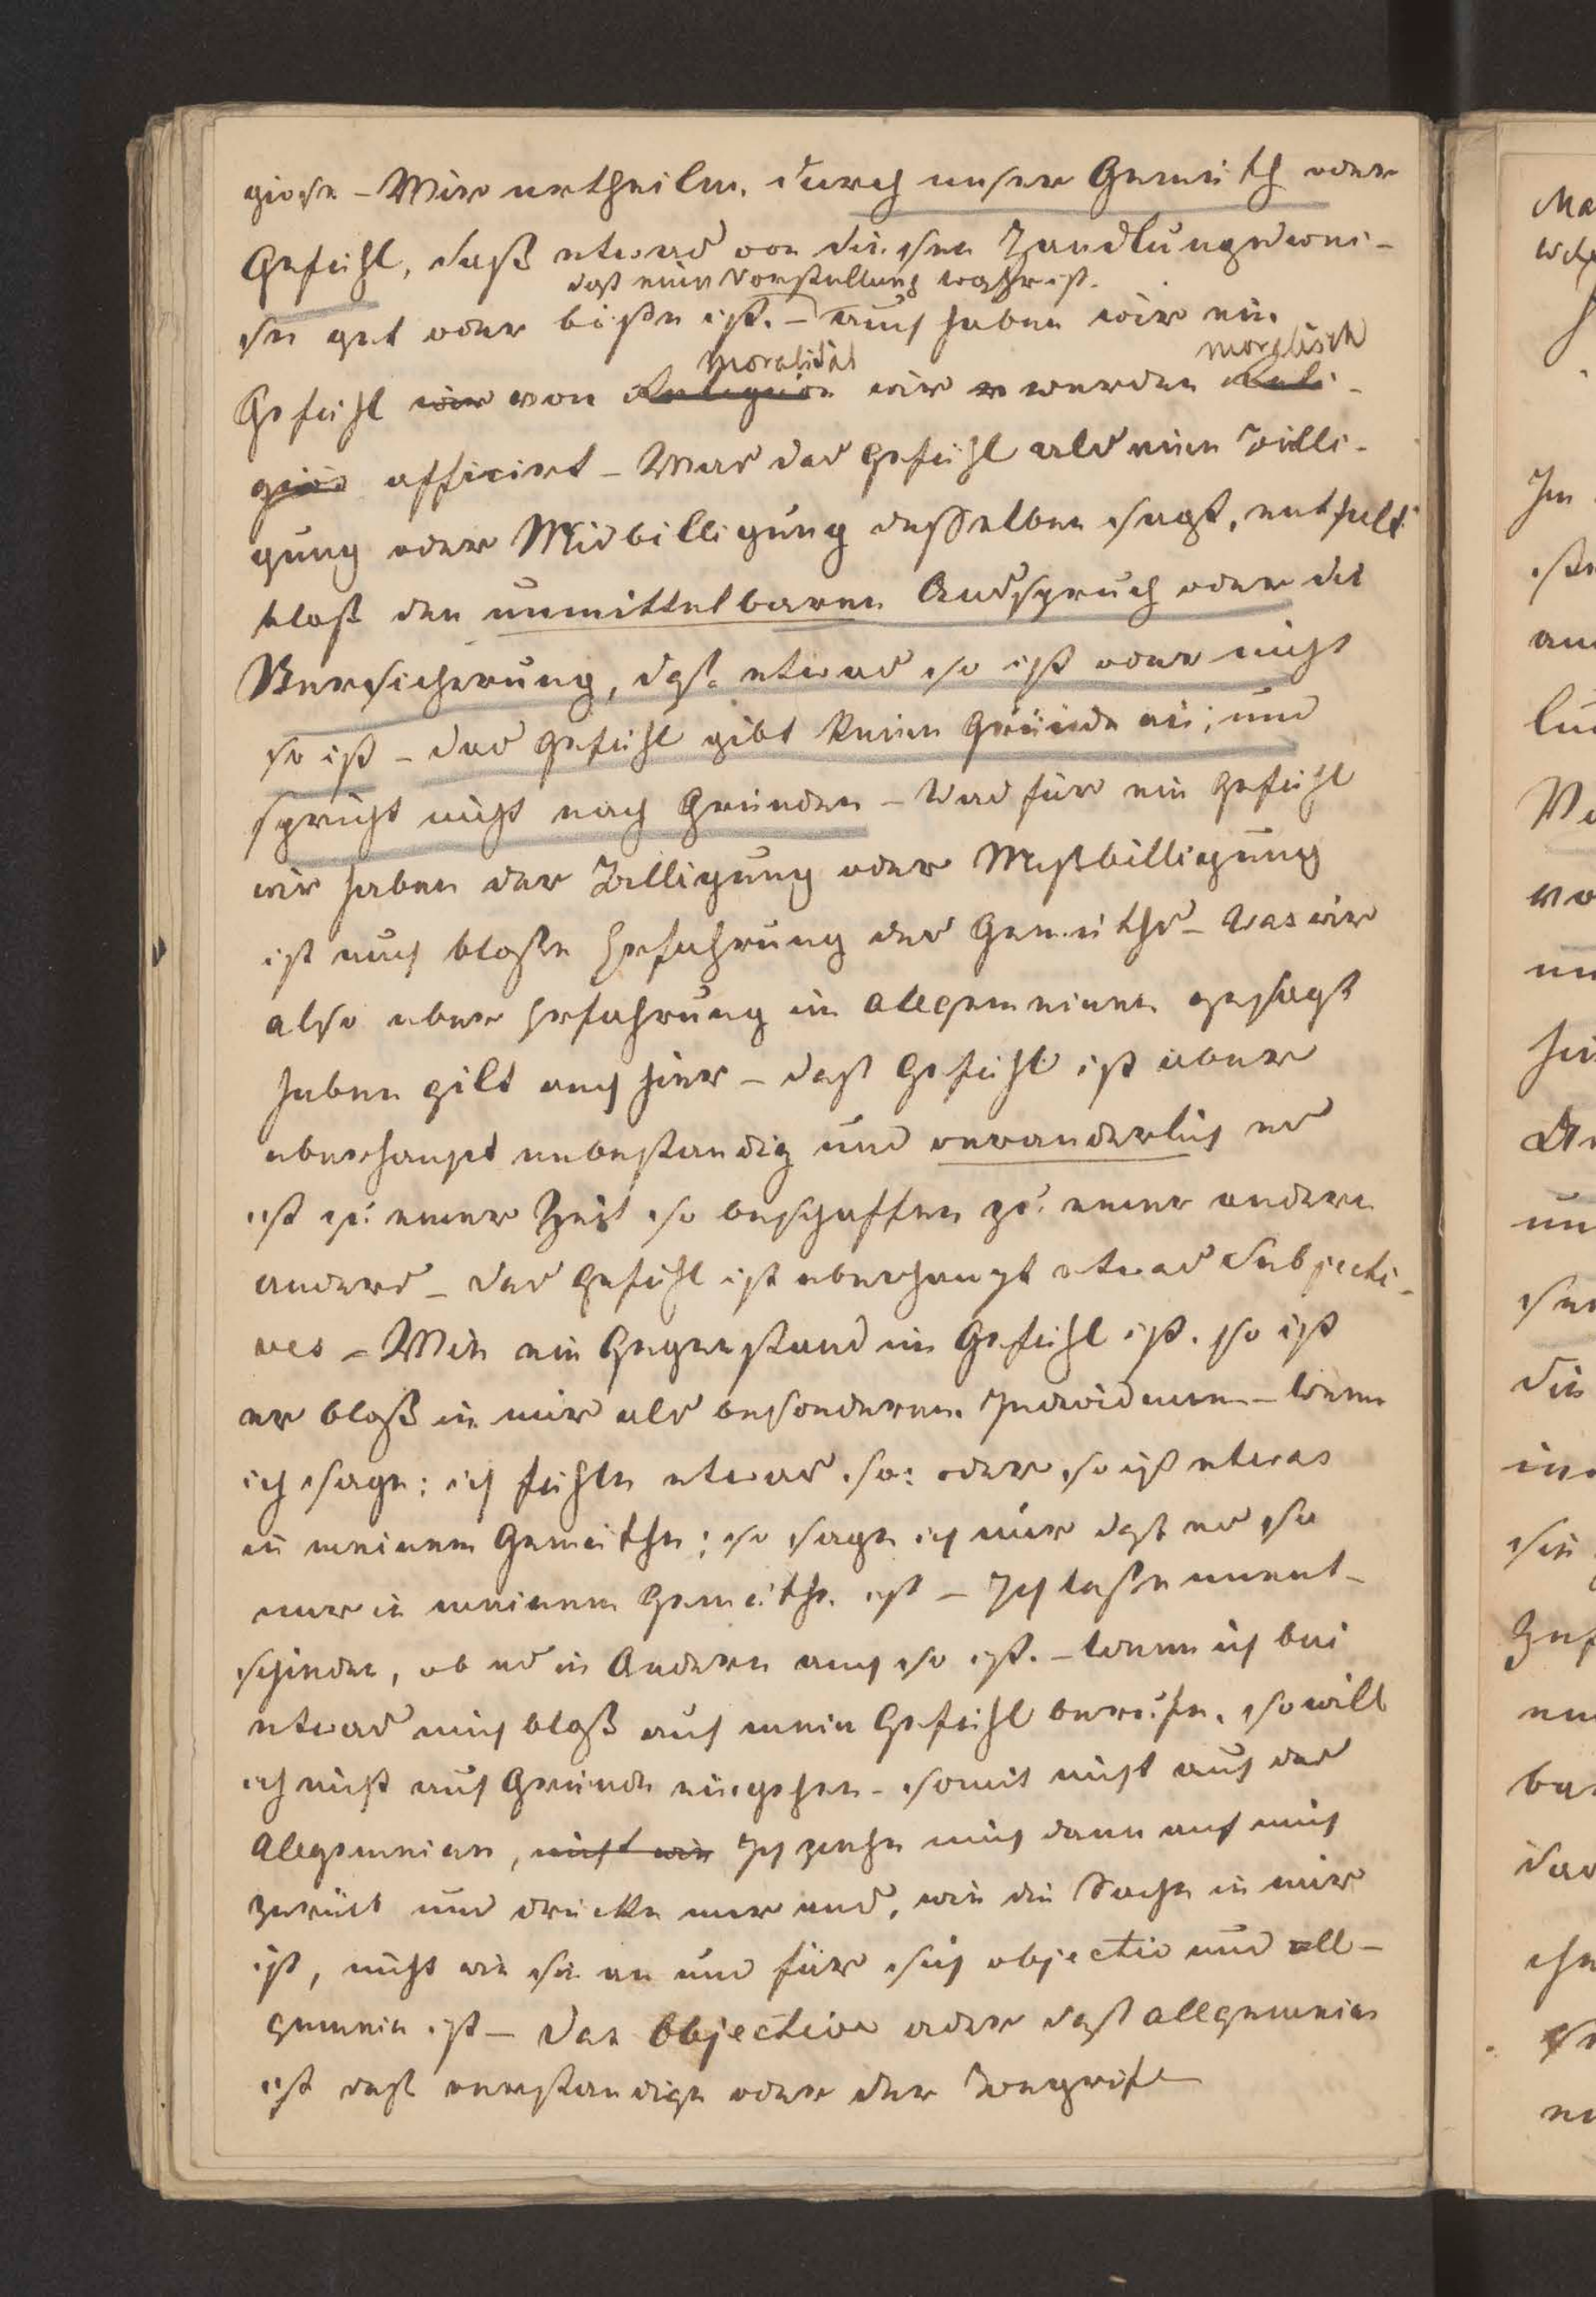 giose – Wir urtheilen, durch unser Gemüth oder
Gefühl, daß etwas von diesen Handlungswei-
daß eine Vorstellung wahr ist.
sen gut oder böse ist. – auch haben wir ein
Moralität moralisch
Gefühl wir von Religion wir er werden Reli-
giös afficirt – Was das Gefühl als eine Billi-
gung oder Misbilligung desselben sagt, enthält
bloß den unmittelbaren Ausspruch oder die
Versicherung, daß etwas so ist oder nicht
so ist – das Gefühl gibt keine Gründe an; und
spricht nicht nach Gründen – Was für ein Gefühl
wir haben der Billigung oder Mißbilligung
ist auch bloße Erfahrung des Gemüths – Was wir
also uber Erfahrung im allgemeinen gesagt
haben gilt auch hier – daß Gefühl ist aber
uberhaupt unbestandig und veranderlich es
ist zu einer Zeit so beschaffen zu einer andern
anders – das Gefühl ist uberhaupt etwas Subjecti-
ves – Wie ein Gegenstand im Gefühl ist. so ist
er bloß in mir als besonderem Individuum – Wenn
ich sage: ich fühle etwas so: oder so ist etwas
in meinem Gemüthe; so sage ich nur daß es so
nur in meinem Gemüthe ist – Ich laße unent-
schieden, ob es in Andern auch so ist. – Wenn ich bei
etwas mich bloß auf mein Gefühl berufe, so will
ich nicht auf Gründe eingehen – somit nicht auf das
Allgemeine, nicht wie Ich ziehe mich dann auf mich
zurück und drücke nur aus, wie die Sache in mir
ist, nicht wie sie an und für sich objectiv und all-
gemein ist – Das Objective oder daß allgemeine
ist daß verstandige oder der Begriff